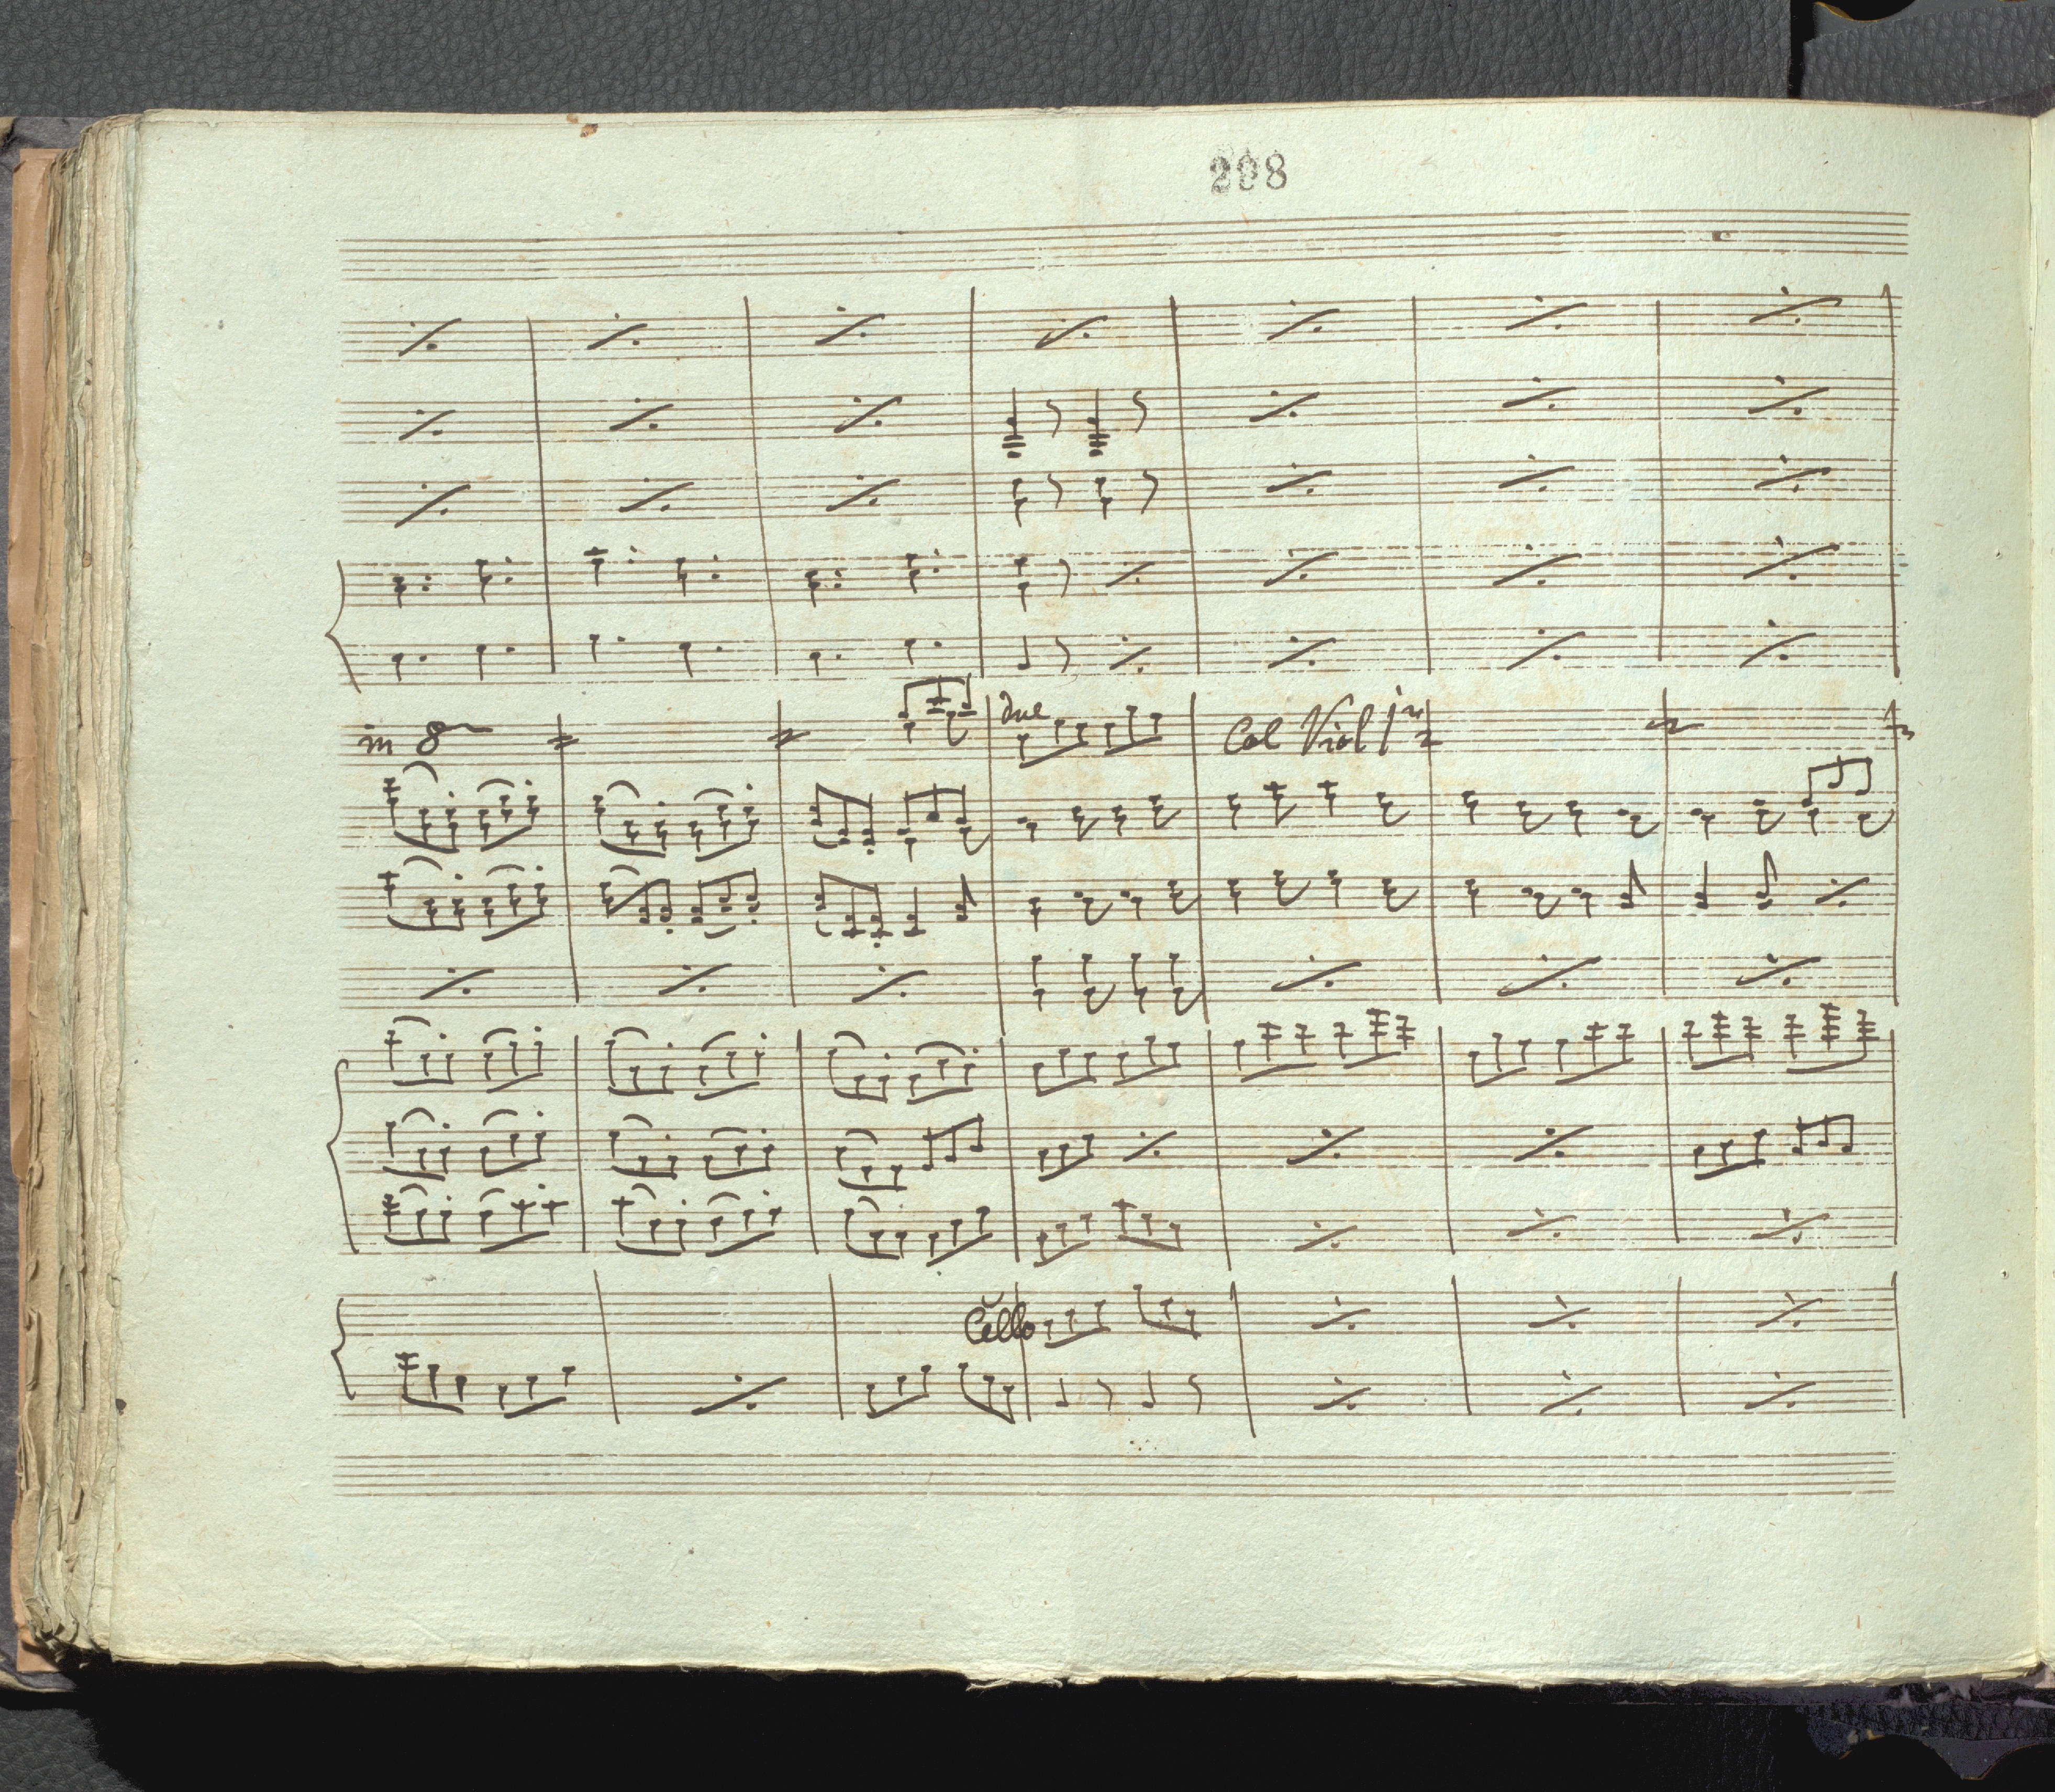 298
in 8
due
Col Viol 1
Cello